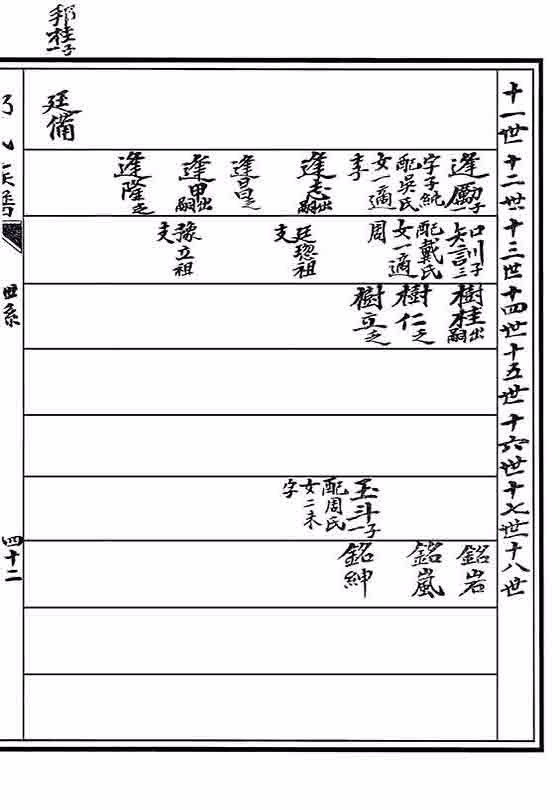 邦桂一子
十一世
十二世
十三世
十四世
十五世
十六世
十七世
十八世
廷備
逢勵一子
字子純
配吳氏
女一適
李
逢志出嗣
逢昌乏
逢甲出嗣
逢隆乏
知訓三子
配戴氏
女一適
周
廷璁祖
支
豫立祖
支
樹桂出嗣
樹仁乏
樹立乏
玉斗一子
配周氏
女二未
字
銘岩
銘嵐
銘紳
氏族譜
世系
四十二